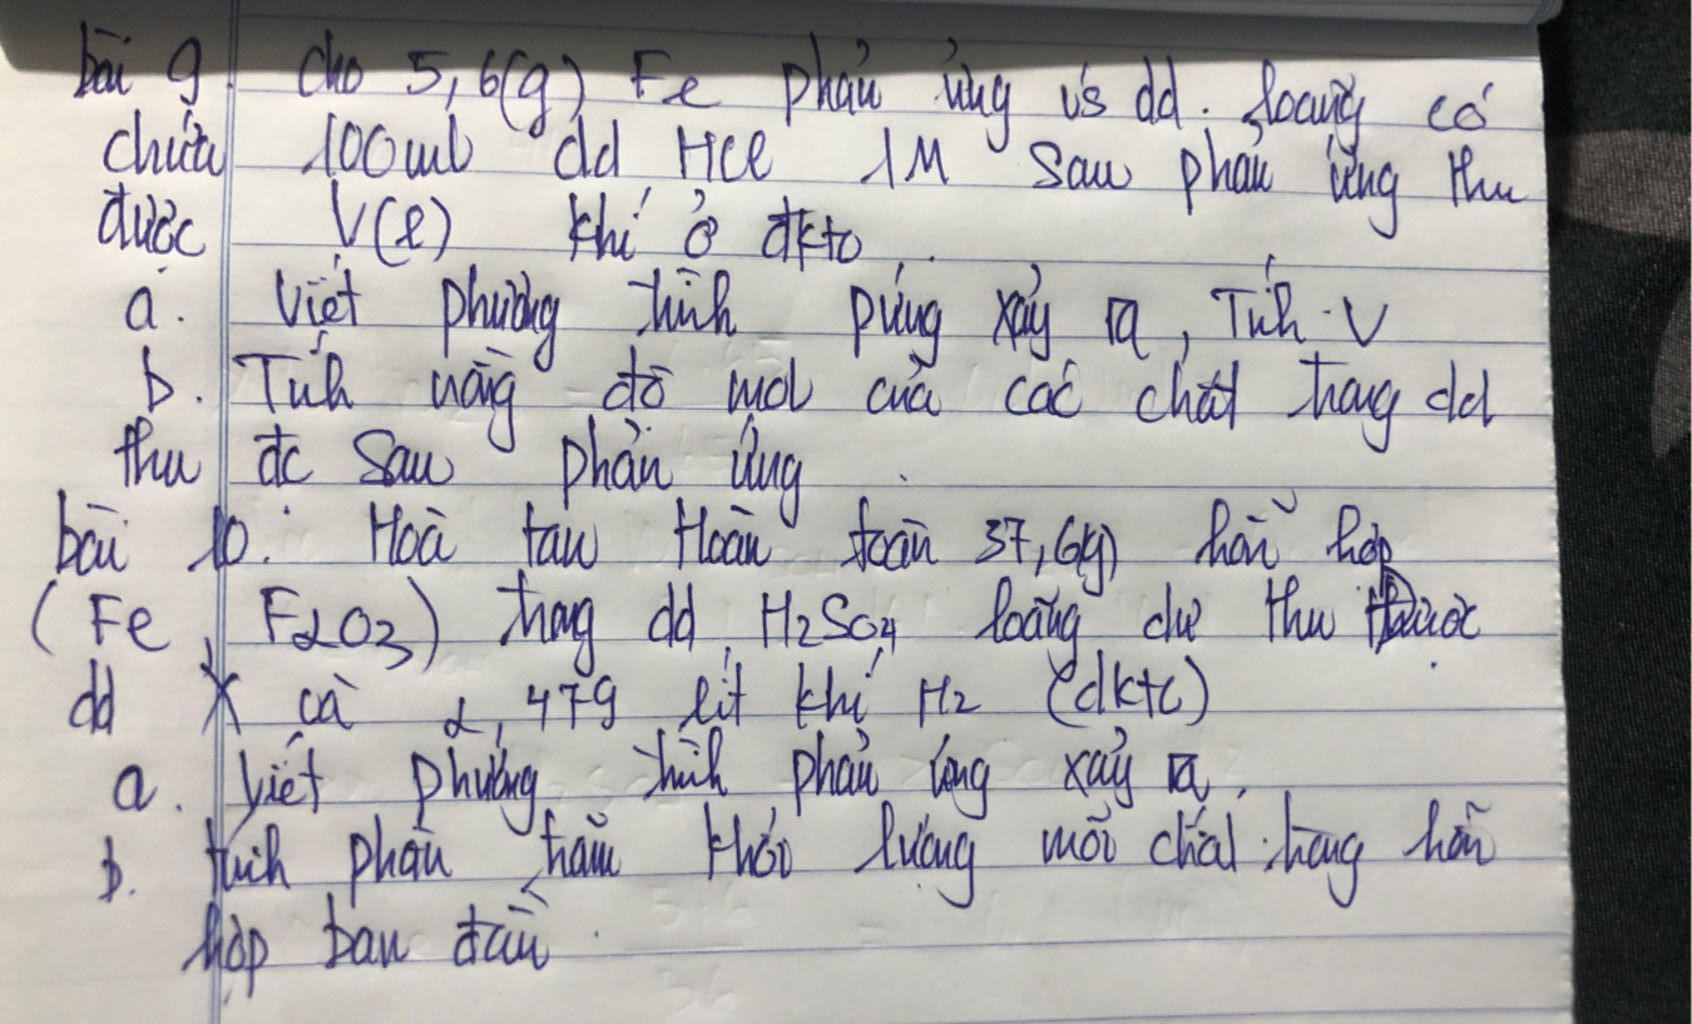 bài 9. Cho 5,6(g) Fe phản ứng vs dd. loãng có
chứa 100ml dd HCl 1M Sau phản ứng thu
được V(l) khí ở đktc.
a. Viết phương trình pứng xảy ra, Tính V
b. Tính nồng độ mol của các chất trong dd
thu đc sau phản ứng.
bài 10: Hoà tan Hoàn toàn 37,6(g) hỗn hợp
(Fe, F2O3) trong dd H2SO4 loãng dư thu được
dd X và 2,479 lít khí H2 (đktc)
a. Viết phương trình phản ứng xảy ra.
b. tính phần trăm khối lượng mỗi chất trong hỗn
hợp ban đầu.